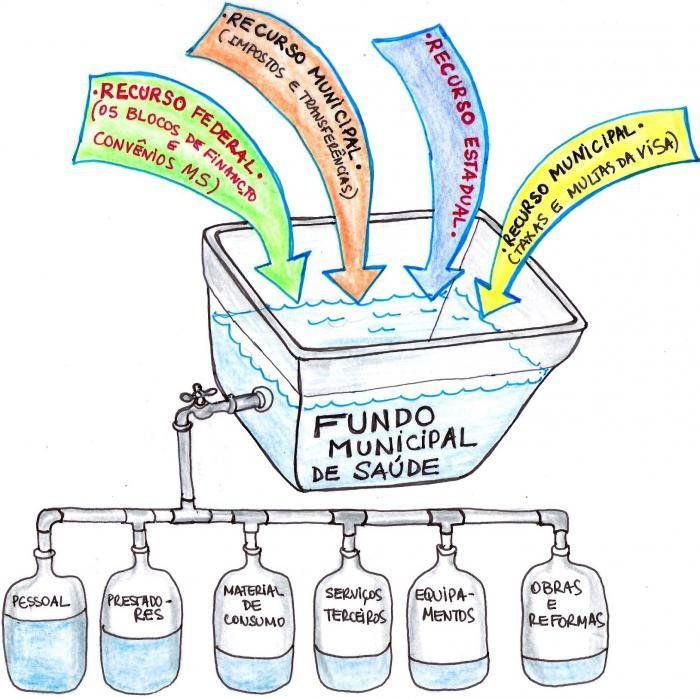 • RECURSO FEDERAL •
(05 BLOCOS DE FINANÇTO
E
CONVÊNIOS MS)
• RECURSO MUNICIPAL •
(IMPOSTOS E TRANSFERÊNCIAS)
• RECURSO ESTADUAL •
• RECURSO MUNICIPAL •
(TAXAS E MULTAS DA VISA)
FUNDO
MUNICIPAL
DE SAÚDE
PESSOAL
PRESTADO-
RES
MATERIAL
DE
CONSUMO
SERVIÇOS
TERCEIROS
EQUIPA-
MENTOS
OBRAS
E
REFORMAS